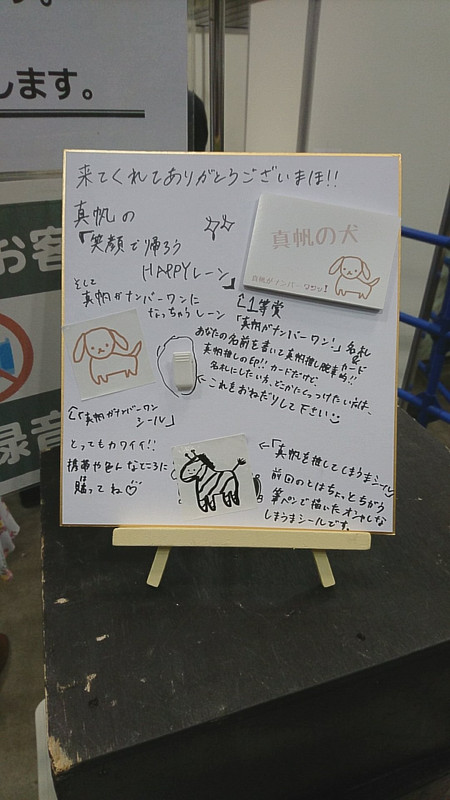 します。
お客
録音
来てくれてありがとうございまほ!!
真帆の
「笑顔で帰ろう
HAPPYレーン」
そして
真帆がナンバーワンに
なっちゃうレーン
真帆の犬
真帆がナンバーワン!
↑1等賞
「真帆がナンバーワン!」名札
&カード
あなたの名前を書いと真帆推し確率的!!
真帆推しの印!!カードだけど、
名札にしたい方、どこかにくっつけたい方は、
←これをおねだりして下さい
↑「真帆がナンバーワン
シール」
とってもカワイイ!!
携帯や色んなところに
貼ってね♡
←「真帆を推してしまうまシール」
前回のとはちょっとちがう
筆ペンで描いたオシャレな
しまうまシールです。